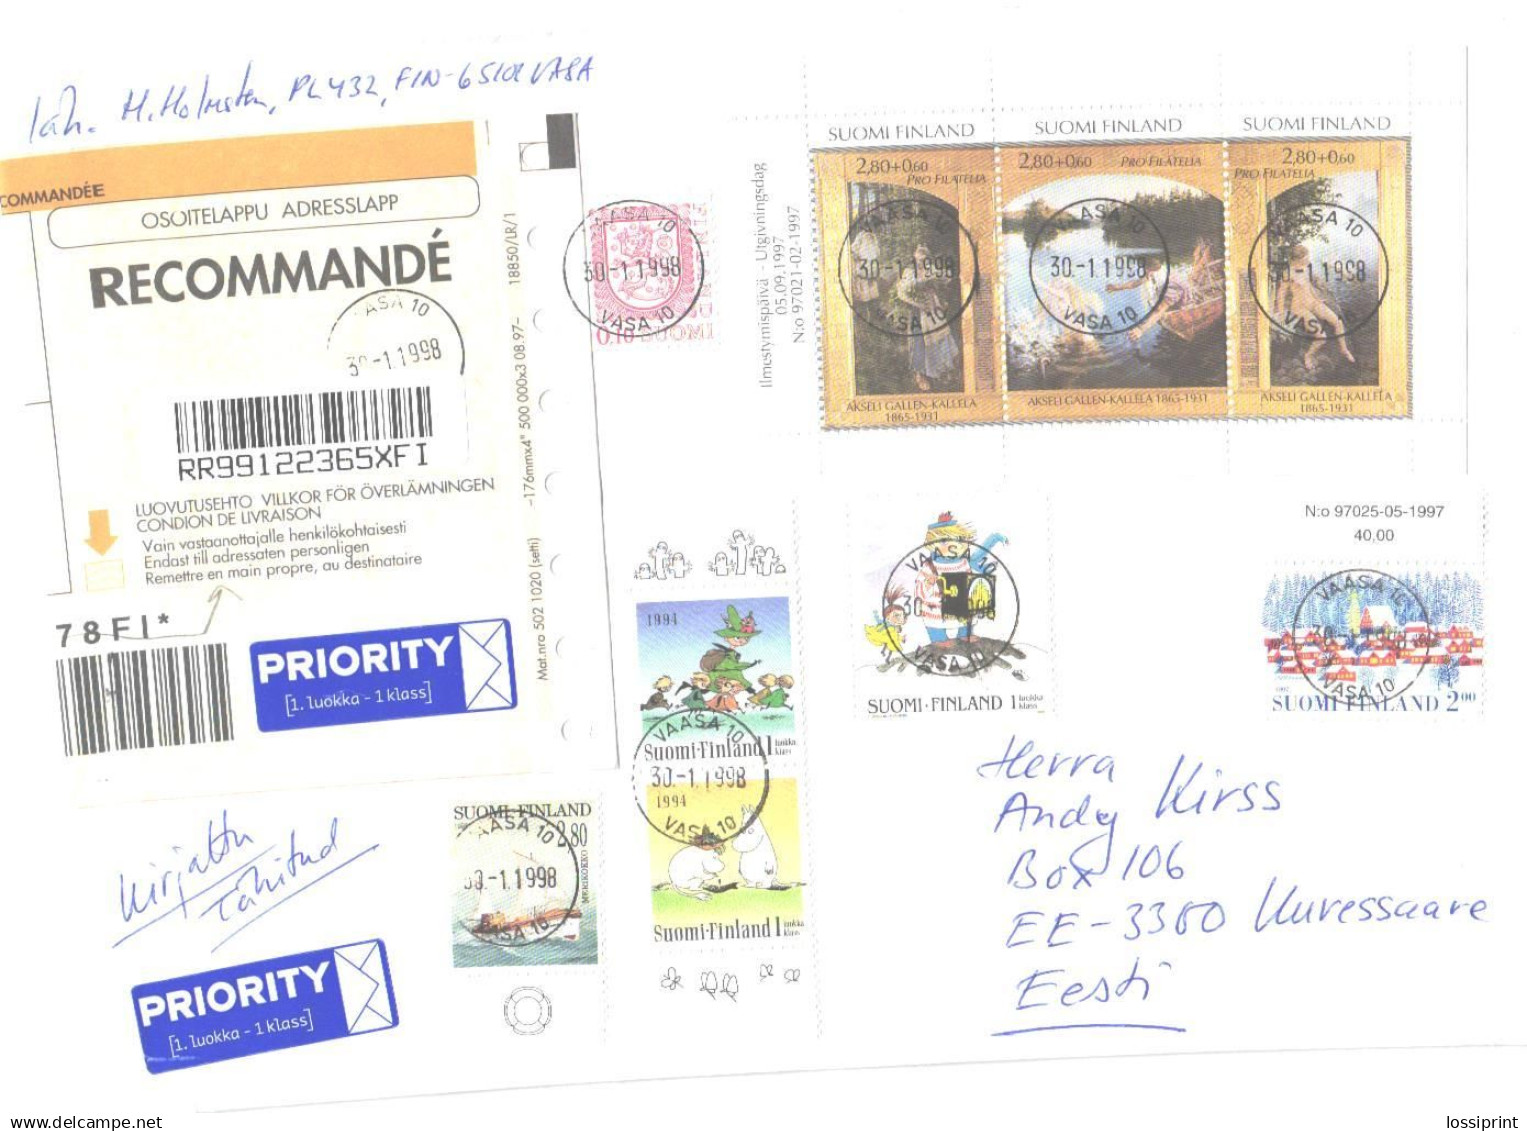 läh. M. Holmsten, PL 432, FIN-65101 VASA
COMMANDÉE
OSOITELAPPU ADRESSLAPP
RECOMMANDÉ
VASA 10
30-1.1998
RR99122365XFI
LUOVUTUSEHTO VILLKOR FÖR ÖVERLÄMNINGEN
CONDION DE LIVRAISON
Vain vastaanottajalle henkilökohtaisesti
Endast till adressaten personligen
Remettre en main propre, au destinataire
78FI*
Mat.nro 502 1020 (setti) -176mmx4" 500 000x3 08.97- 18850/LR/1
PRIORITY
[1. luokka - 1 klass]
VAASA 10
30.-1.1998
VASA 10
0,10 SUOMI
FINLAND
Ilmestymispäivä - Utgivningsdag
05.09.1997
N:o 97021-02-1997
SUOMI FINLAND
2,80+0,60
PRO FILATELIA
VAASA 10
30-1.1998
VASA 10
AKSELI GALLEN-KALLELA
1865-1931
SUOMI FINLAND
2,80+0,60 PRO FILATELIA
VAASA 10
30.-1.1998
VASA 10
AKSELI GALLEN-KALLELA 1865-1931
SUOMI FINLAND
2,80+0,60
PRO FILATELIA
VAASA 10
30-1.1998
VASA 10
AKSELI GALLEN-KALLELA
1865-1931
1994
Suomi-Finland 1 luokka klass
VAASA 10
30.-1.1998
VASA 10
1994
Suomi-Finland 1 luokka klass
VAASA 10
30.-1.1998
VASA 10
SUOMI-FINLAND 1 luokka klass
N:o 97025-05-1997
40,00
VAASA 10
30.-1.1998
VASA 10
1997
SUOMI FINLAND 2,00
SUOMI-FINLAND
2,80
MERIKOKKO
VAASA 10
30.-1.1998
VASA 10
Kirjattu
Tähitud
PRIORITY
[1. luokka - 1 klass]
Herra
Andy Kirss
Box 106
EE-3380 Kuressaare
Eesti
lossiprint